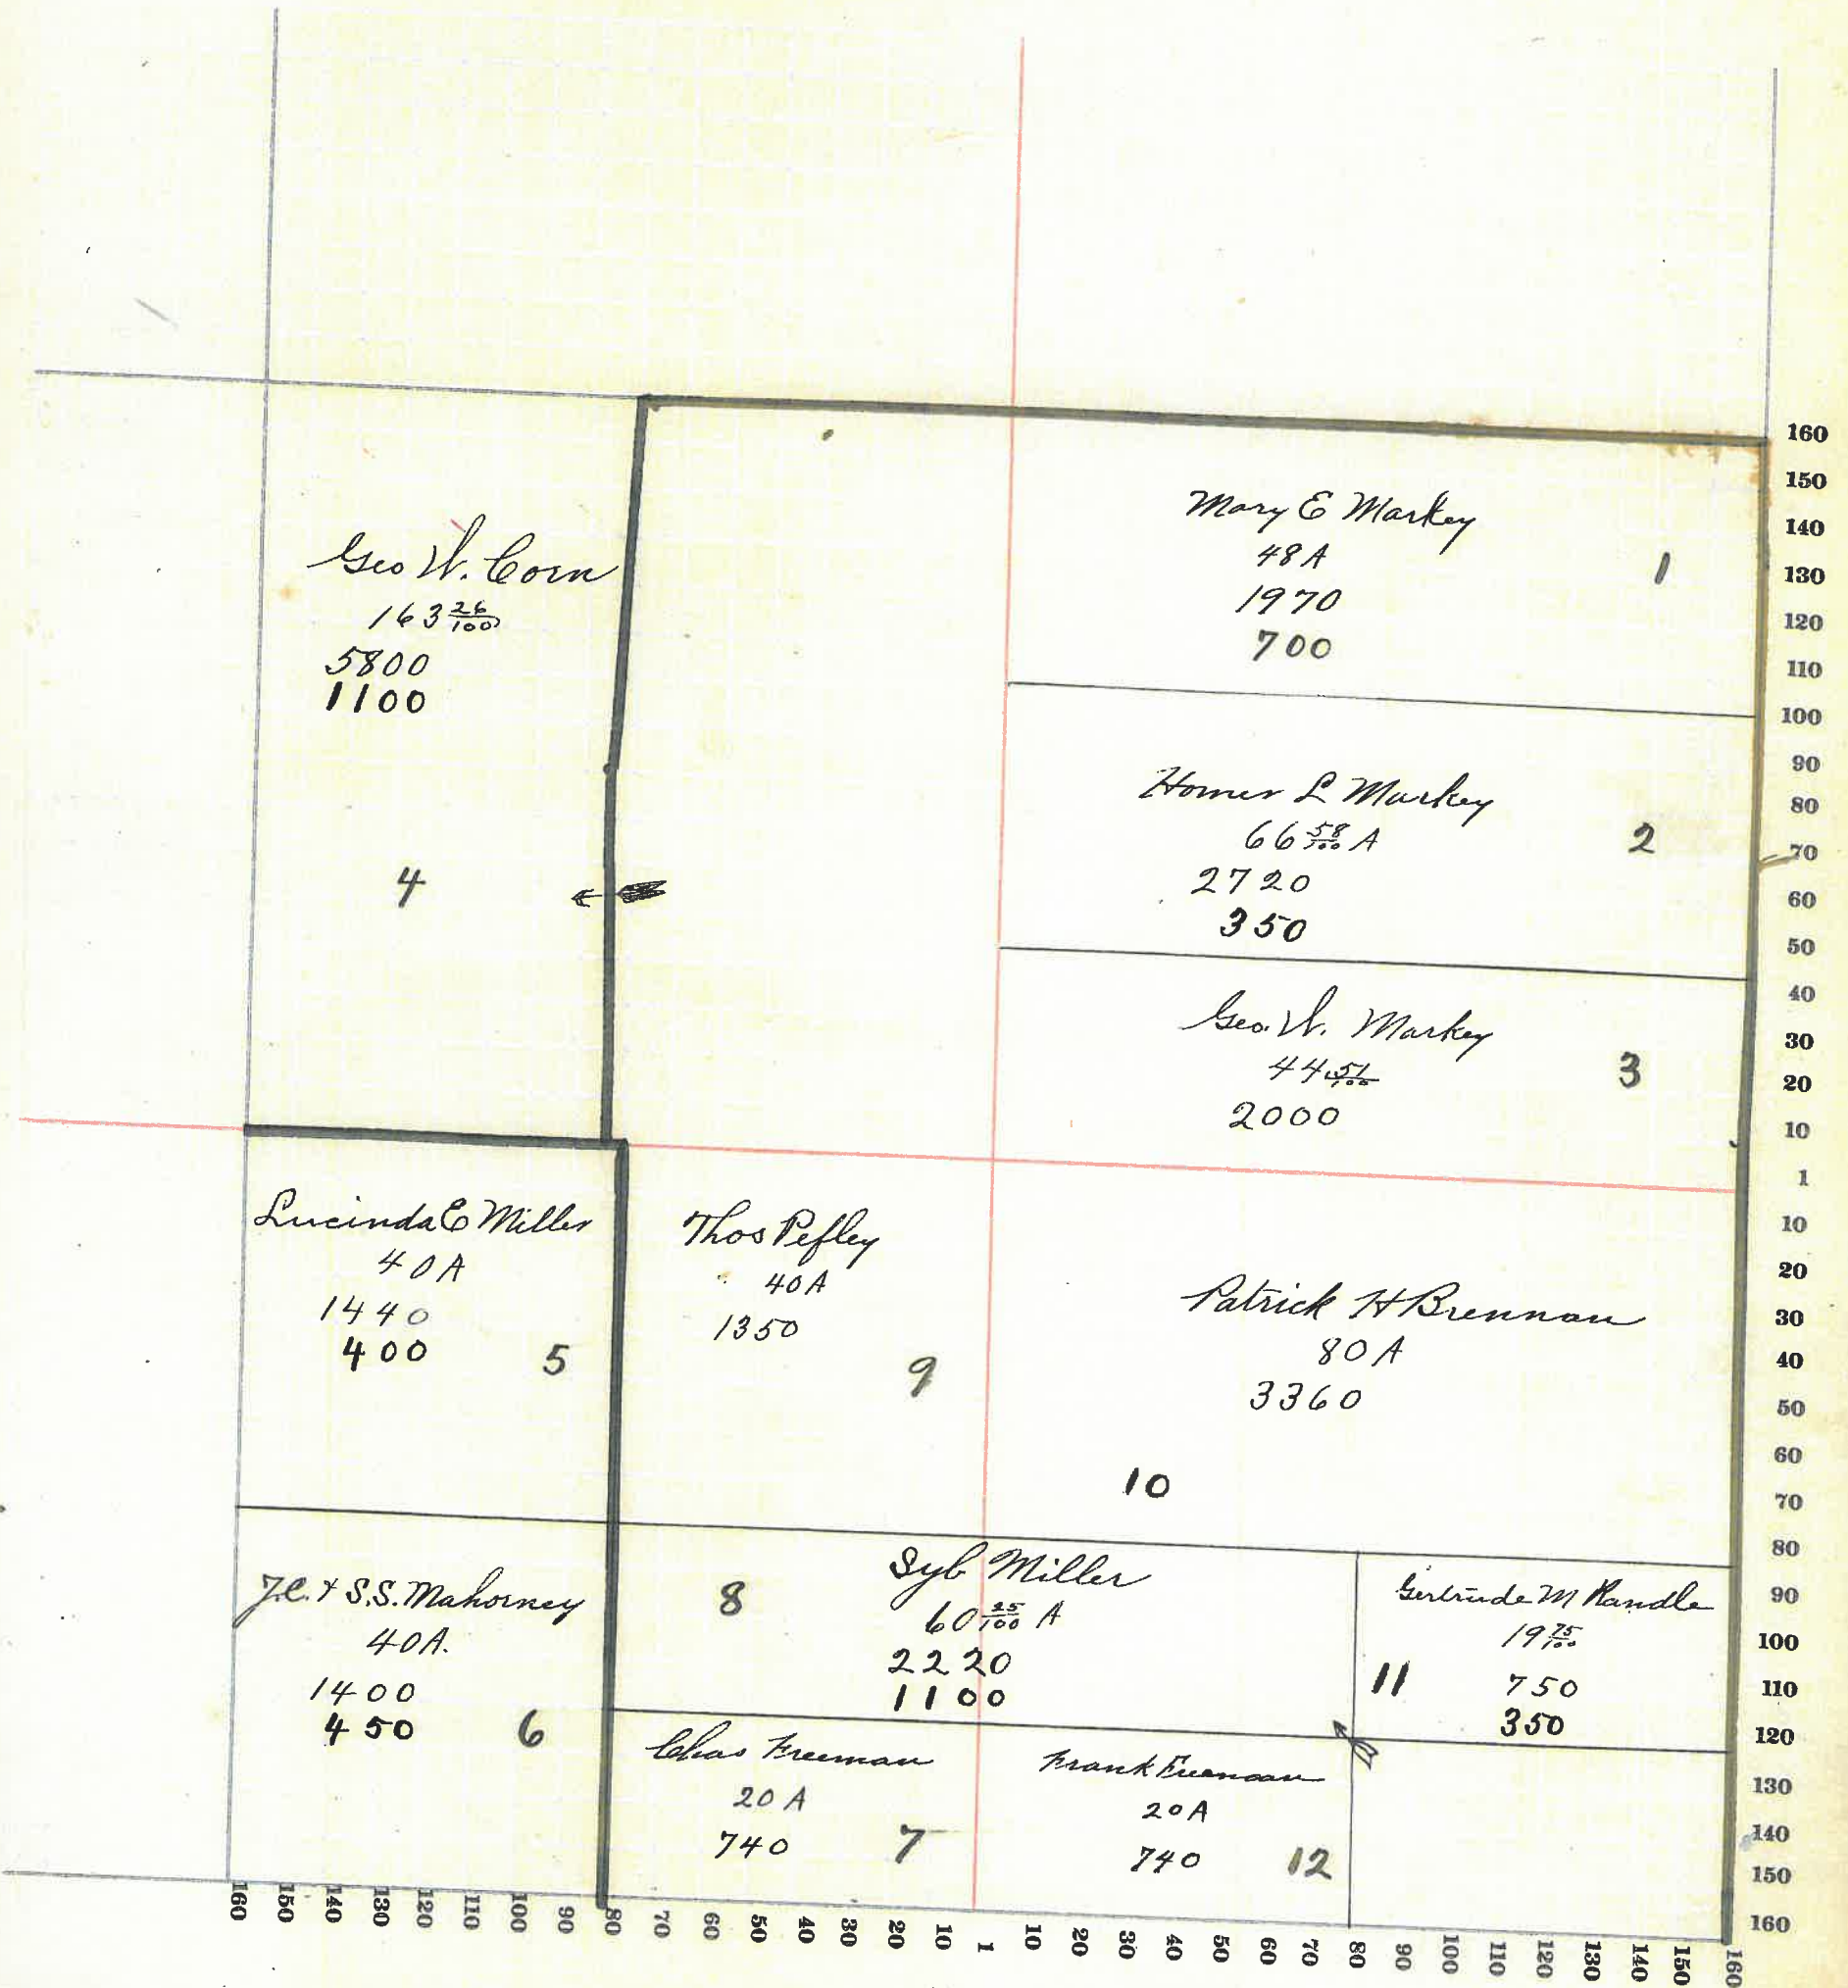 Geo W. Corn
163 26/100
5800
1100
4
Mary E Markey
48 A
1970
700
1
Homer L Markey
66 58/100 A
2720
350
2
Geo. W. Markey
44 51/100
2000
3
Lucinda E Miller
40 A
1440
400
5
Thos Pefley
40 A
1350
9
Patrick H Brennan
80 A
3360
10
J.C. & S.S. Mahorney
40 A.
1400
450
6
8
Syb Miller
60 25/100 A
2220
1100
Gertrude M Randle
19 75/100
11
750
350
Chas Freeman
20 A
740
7
Frank Freeman
20 A
740
12
160
150
140
130
120
110
100
90
80
70
60
50
40
30
20
10
1
10
20
30
40
50
60
70
80
90
100
110
120
130
140
150
160
160 150 140 130 120 110 100 90 80 70 60 50 40 30 20 10 1 10 20 30 40 50 60 70 80 90 100 110 120 130 140 150 160